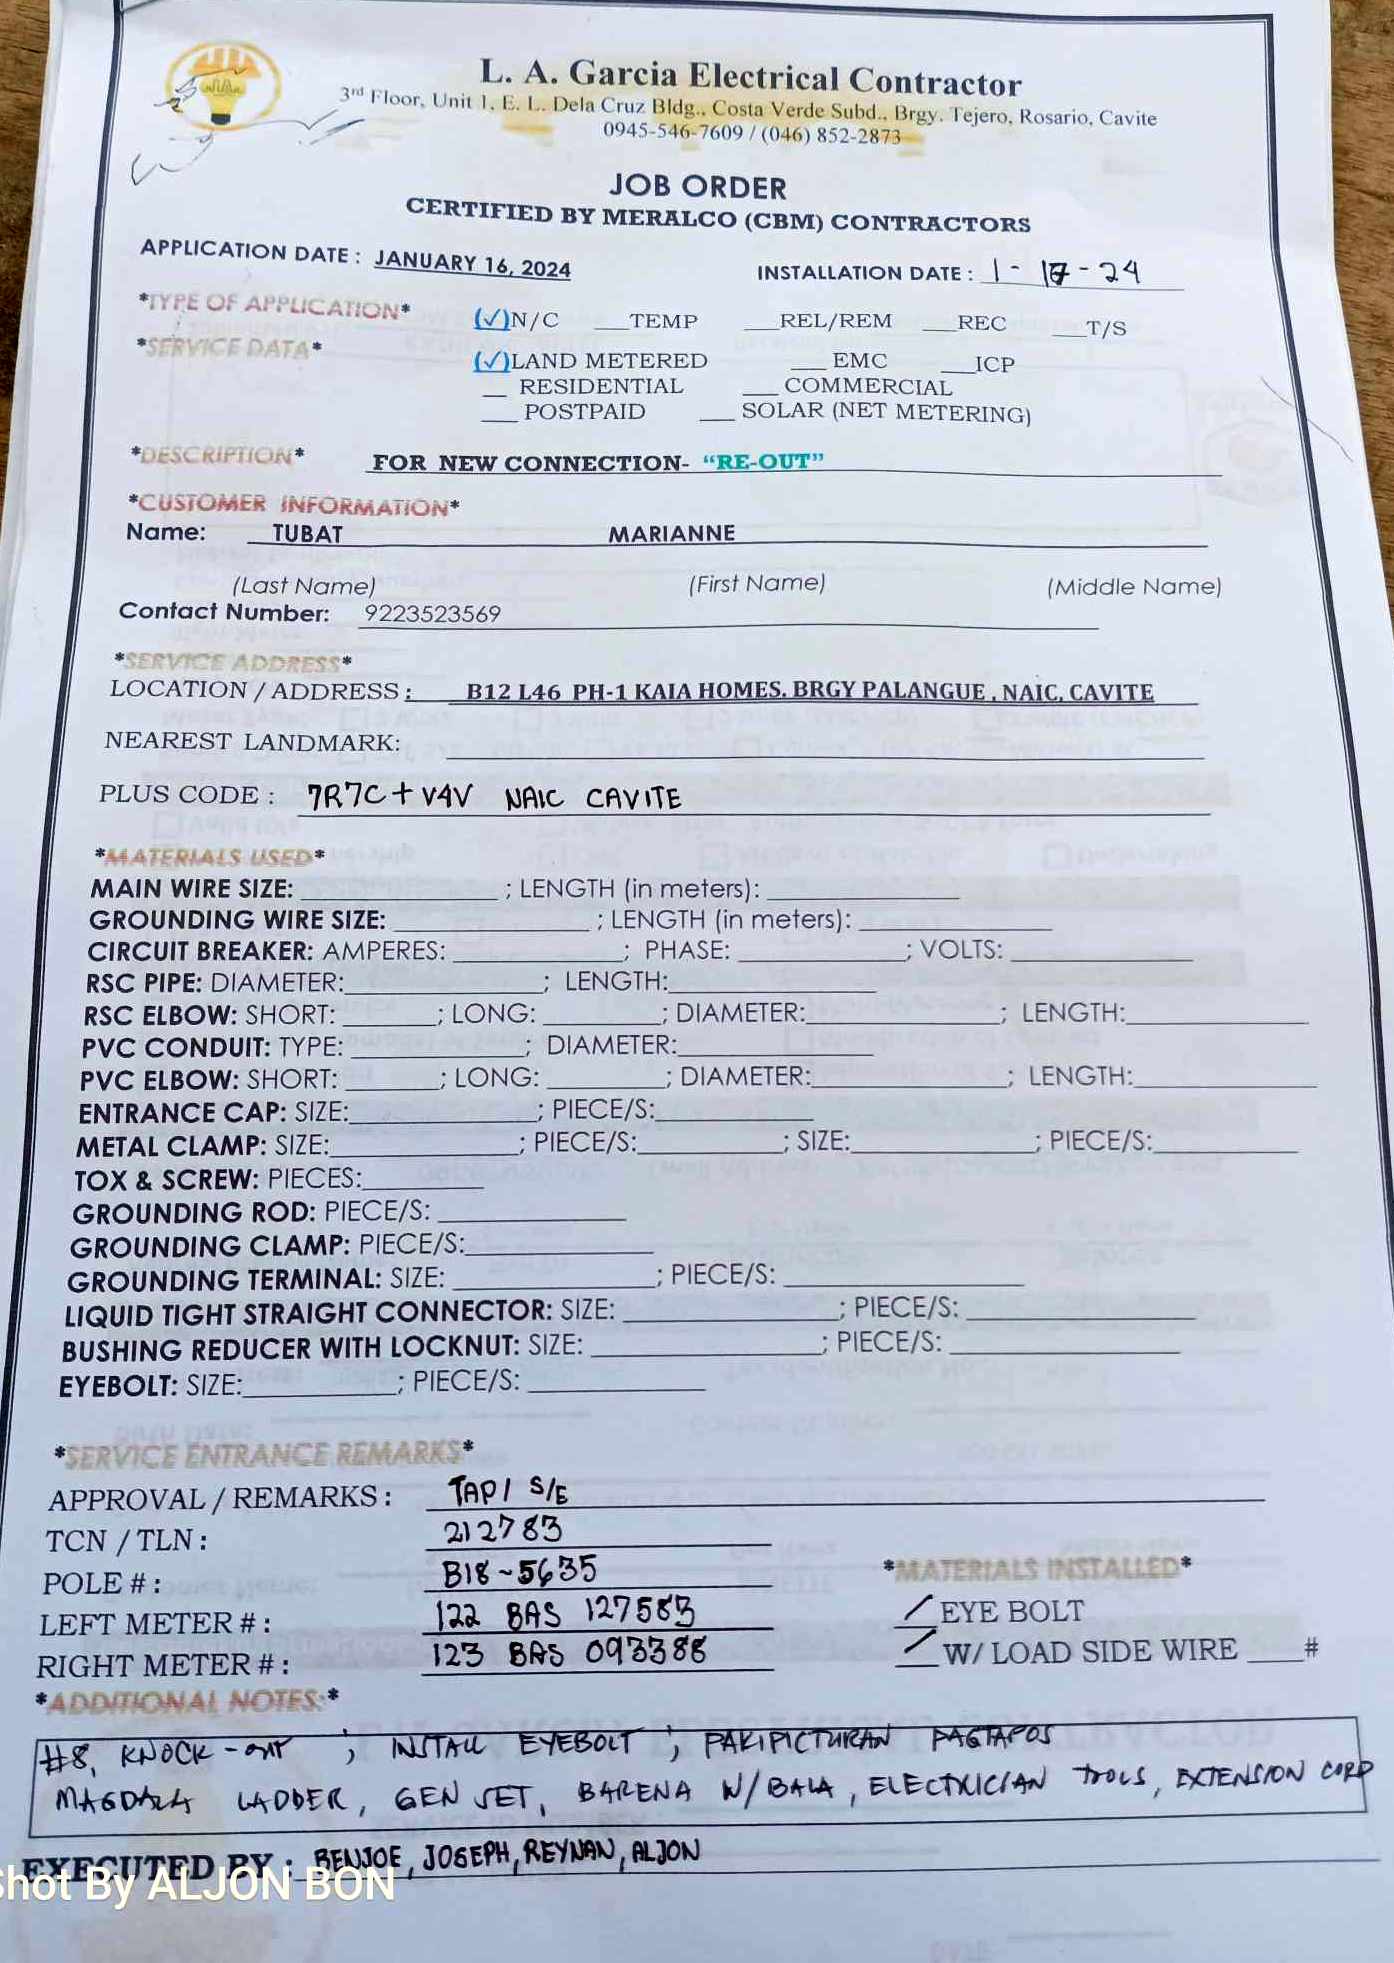 L. A. Garcia Electrical Contractor
3rd Floor, Unit 1, E. L. Dela Cruz Bldg., Costa Verde Subd., Brgy. Tejero, Rosario, Cavite
0945-546-7609 / (046) 852-2873
JOB ORDER
CERTIFIED BY MERALCO (CBM) CONTRACTORS
APPLICATION DATE : JANUARY 16, 2024 INSTALLATION DATE : 1 - 17 - 24
*TYPE OF APPLICATION* (✓)N/C ___TEMP ___REL/REM ___REC ___T/S
*SERVICE DATA* (✓)LAND METERED ___ EMC ___ICP
__ RESIDENTIAL ___ COMMERCIAL
___ POSTPAID ___ SOLAR (NET METERING)
*DESCRIPTION* FOR NEW CONNECTION- “RE-OUT”
*CUSTOMER INFORMATION*
Name: TUBAT MARIANNE
(Last Name) (First Name) (Middle Name)
Contact Number: 9223523569
*SERVICE ADDRESS*
LOCATION / ADDRESS : B12 L46 PH-1 KAIA HOMES. BRGY PALANGUE , NAIC, CAVITE
NEAREST LANDMARK:
PLUS CODE : 7R7C+V4V NAIC CAVITE
*MATERIALS USED*
MAIN WIRE SIZE: ____ ; LENGTH (in meters): ____
GROUNDING WIRE SIZE: ____ ; LENGTH (in meters): ____
CIRCUIT BREAKER: AMPERES: ____; PHASE: ____; VOLTS: ____
RSC PIPE: DIAMETER:____; LENGTH:____
RSC ELBOW: SHORT: ____; LONG: ____; DIAMETER:____; LENGTH:____
PVC CONDUIT: TYPE: ____; DIAMETER:____
PVC ELBOW: SHORT: ____; LONG: ____; DIAMETER:____; LENGTH:____
ENTRANCE CAP: SIZE:____; PIECE/S:____
METAL CLAMP: SIZE:____; PIECE/S:____; SIZE:____; PIECE/S:____
TOX & SCREW: PIECES:____
GROUNDING ROD: PIECE/S: ____
GROUNDING CLAMP: PIECE/S:____
GROUNDING TERMINAL: SIZE: ____; PIECE/S: ____
LIQUID TIGHT STRAIGHT CONNECTOR: SIZE: ____; PIECE/S:____
BUSHING REDUCER WITH LOCKNUT: SIZE: ____; PIECE/S: ____
EYEBOLT: SIZE:____; PIECE/S: ____
*SERVICE ENTRANCE REMARKS*
APPROVAL / REMARKS : TAP1 S/E
TCN / TLN : 212783
POLE # : B18-5635
LEFT METER # : 122 BAS 127583
RIGHT METER # : 123 BAS 093388
*MATERIALS INSTALLED*
/ EYE BOLT
/ W/ LOAD SIDE WIRE ___#
*ADDITIONAL NOTES:*
#8, KNOCK-OUT ; INSTALL EYEBOLT ; PAKIPICTURAN PAGTAPOS
MAGDALA LADDER, GEN SET, BARENA W/BALA, ELECTRICIAN TOOLS, EXTENSION CORD
EXECUTED BY : BENJOE, JOSEPH, REYNAN, ALJON
Shot By ALJON BON